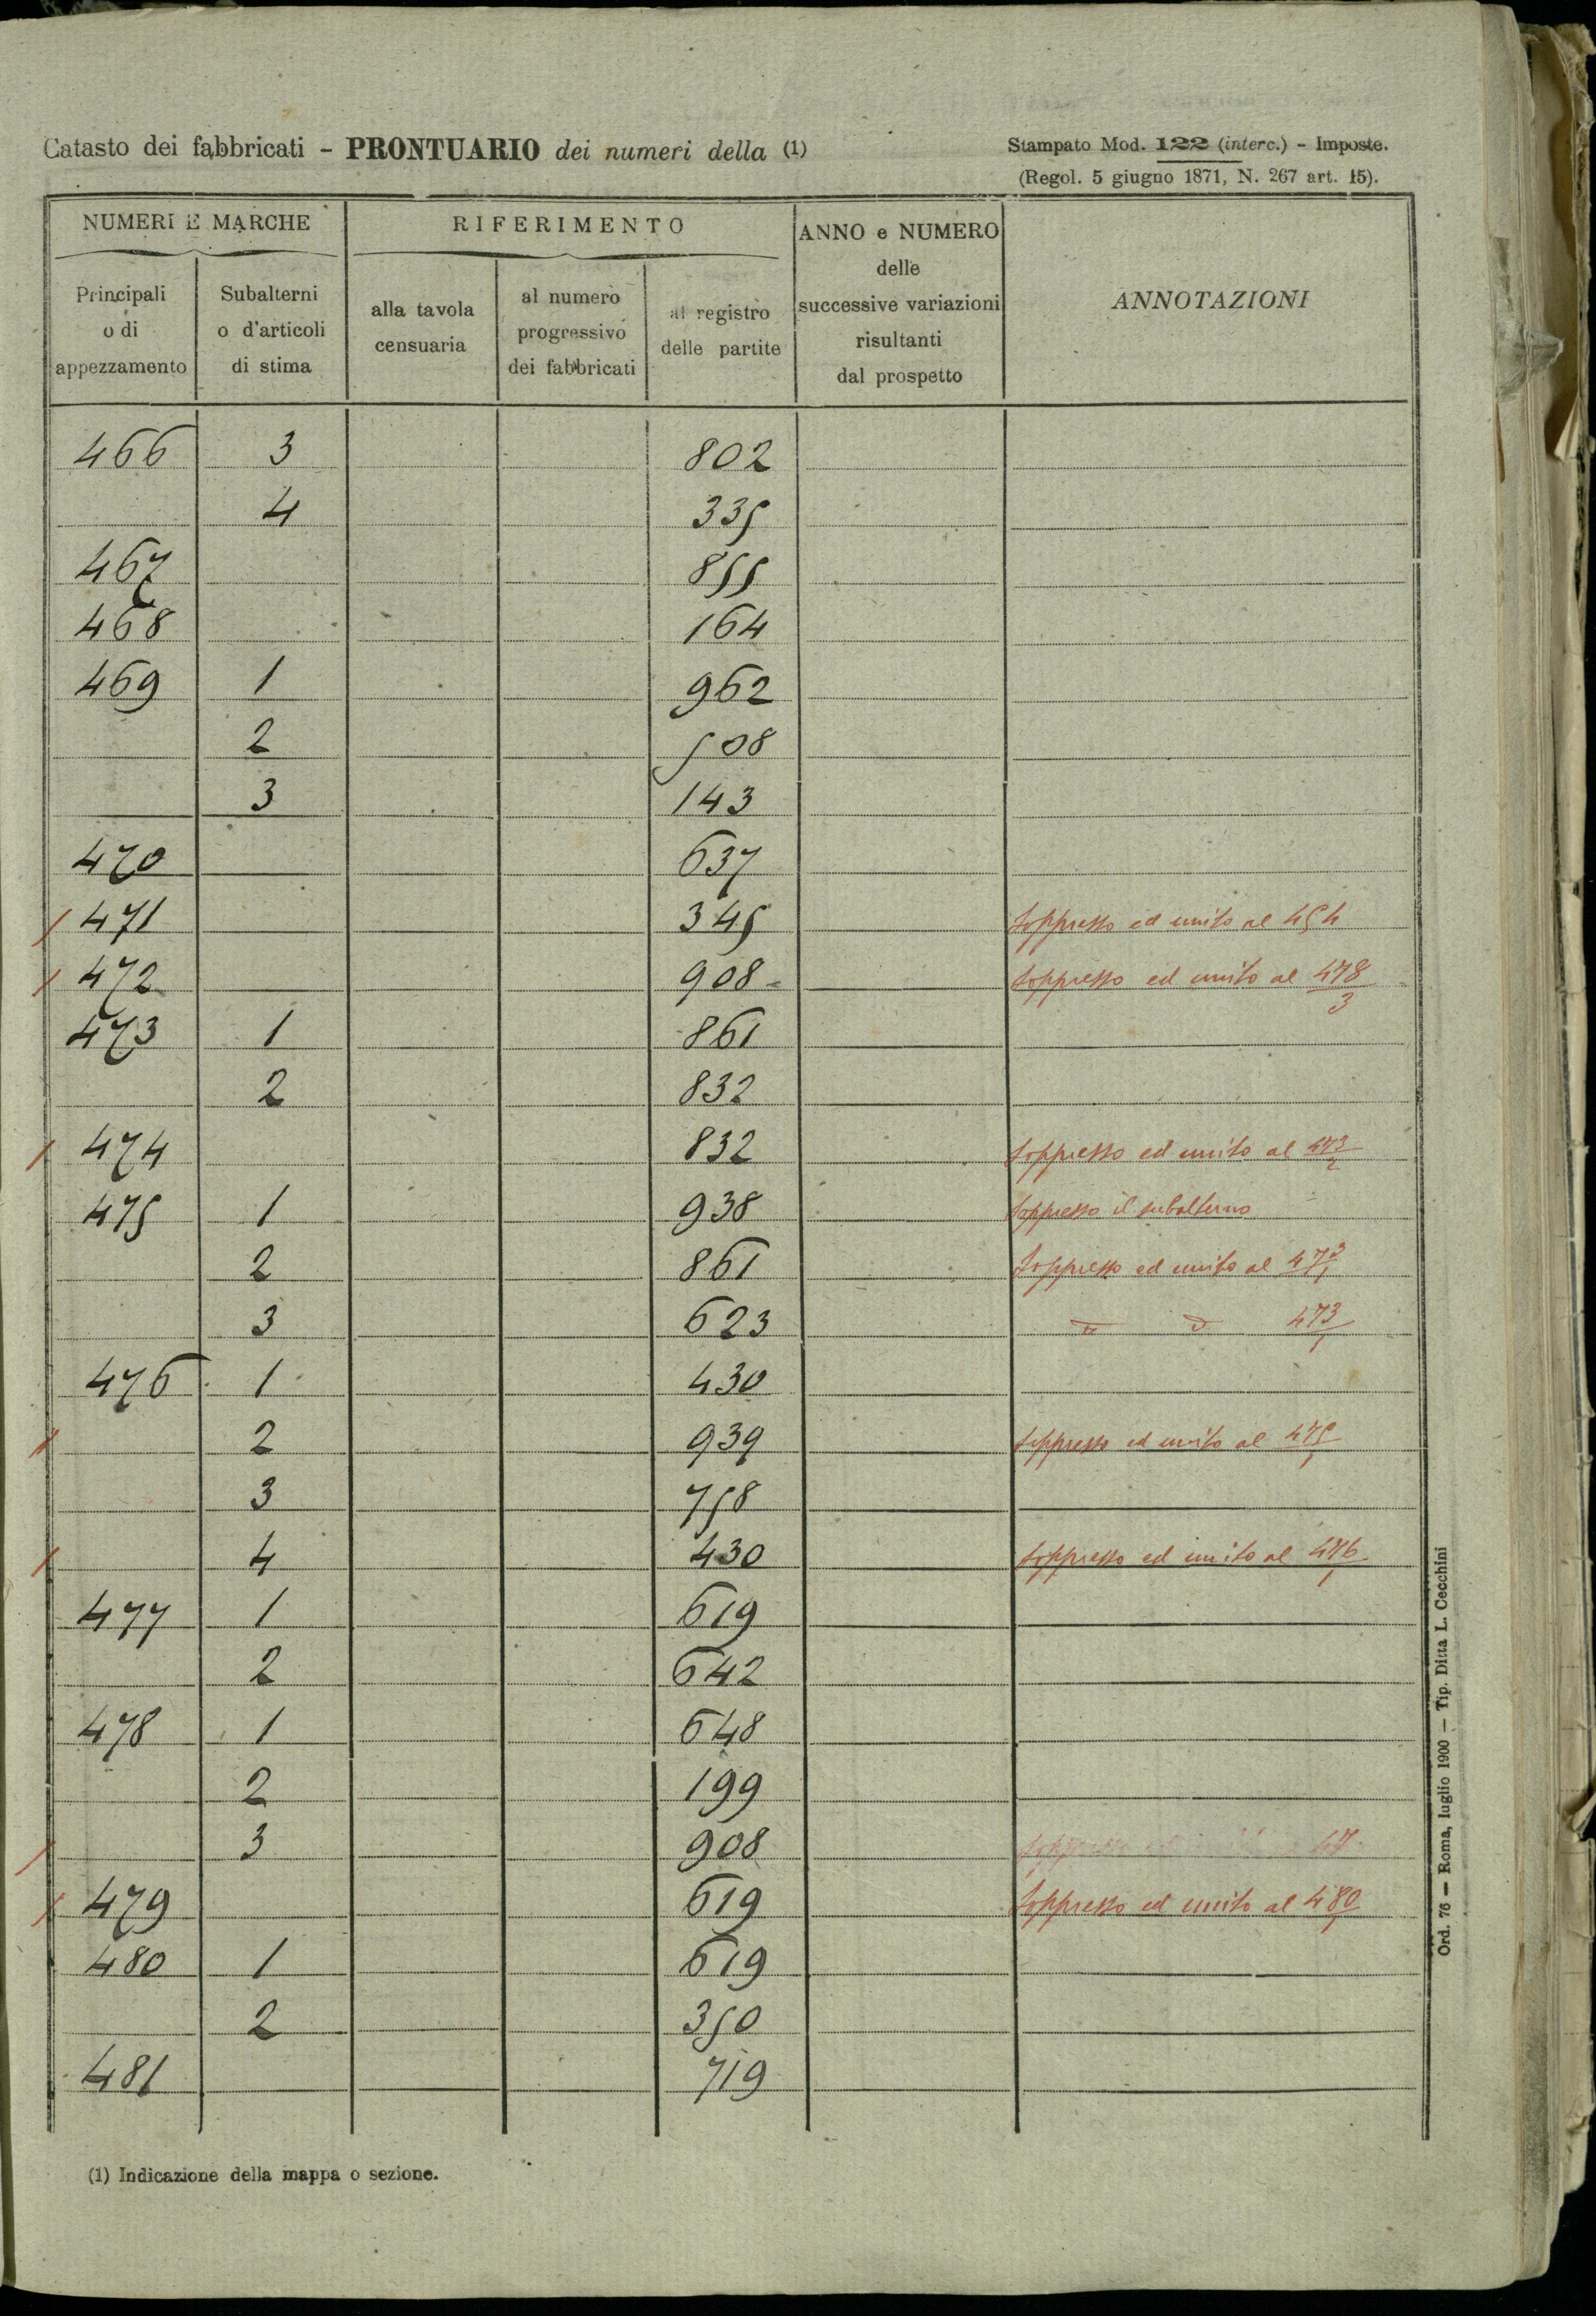 Catasto dei fabbricati - PRONTUARIO dei numeri della (1)
Stampato Mod. 122 (interc.) - Imposte.
(Regol. 5 giugno 1871, N. 267 art. 15).
NUMERI E MARCHE
RIFERIMENTO
ANNO e NUMERO
delle
successive variazioni
risultanti
dal prospetto
ANNOTAZIONI
Principali
o di
appezzamento
Subalterni
o d'articoli
di stima
alla tavola
censuaria
al numero
progressivo
dei fabbricati
al registro
delle partite
466 3 802
4 335
467 855
468 164
469 1 962
2 508
3 143
470 637
/ 471 345 soppresso ed unito al 454
/ 472 908 soppresso ed unito al 478/3
473 1 861
2 832
/ 474 832 soppresso ed unito al 473/2
475 1 938 soppresso il subalterno
2 861 soppresso ed unito al 473/1
3 623 " " 473/1
476 1 430
/ 2 939 soppresso ed unito al 475/1
3 758
/ 4 430 soppresso ed unito al 476/1
477 1 619
2 642
478 1 648
2 199
/ 3 908 soppresso ed
/ 479 619 soppresso ed unito al 480/1
480 1 619
2 350
481 719
(1) Indicazione della mappa o sezione.
Ord. 76 — Roma, luglio 1900 — Tip. Ditta L. Cecchini